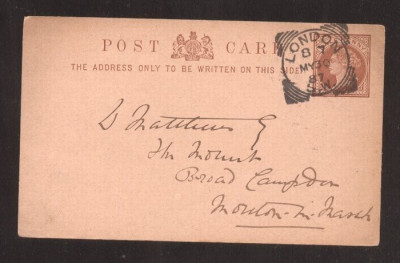 POST CARD
THE ADDRESS ONLY TO BE WRITTEN ON THIS SIDE
LONDON
87
S.W
Matthews
The Mount
Broad Campden
Moreton-in-Marsh